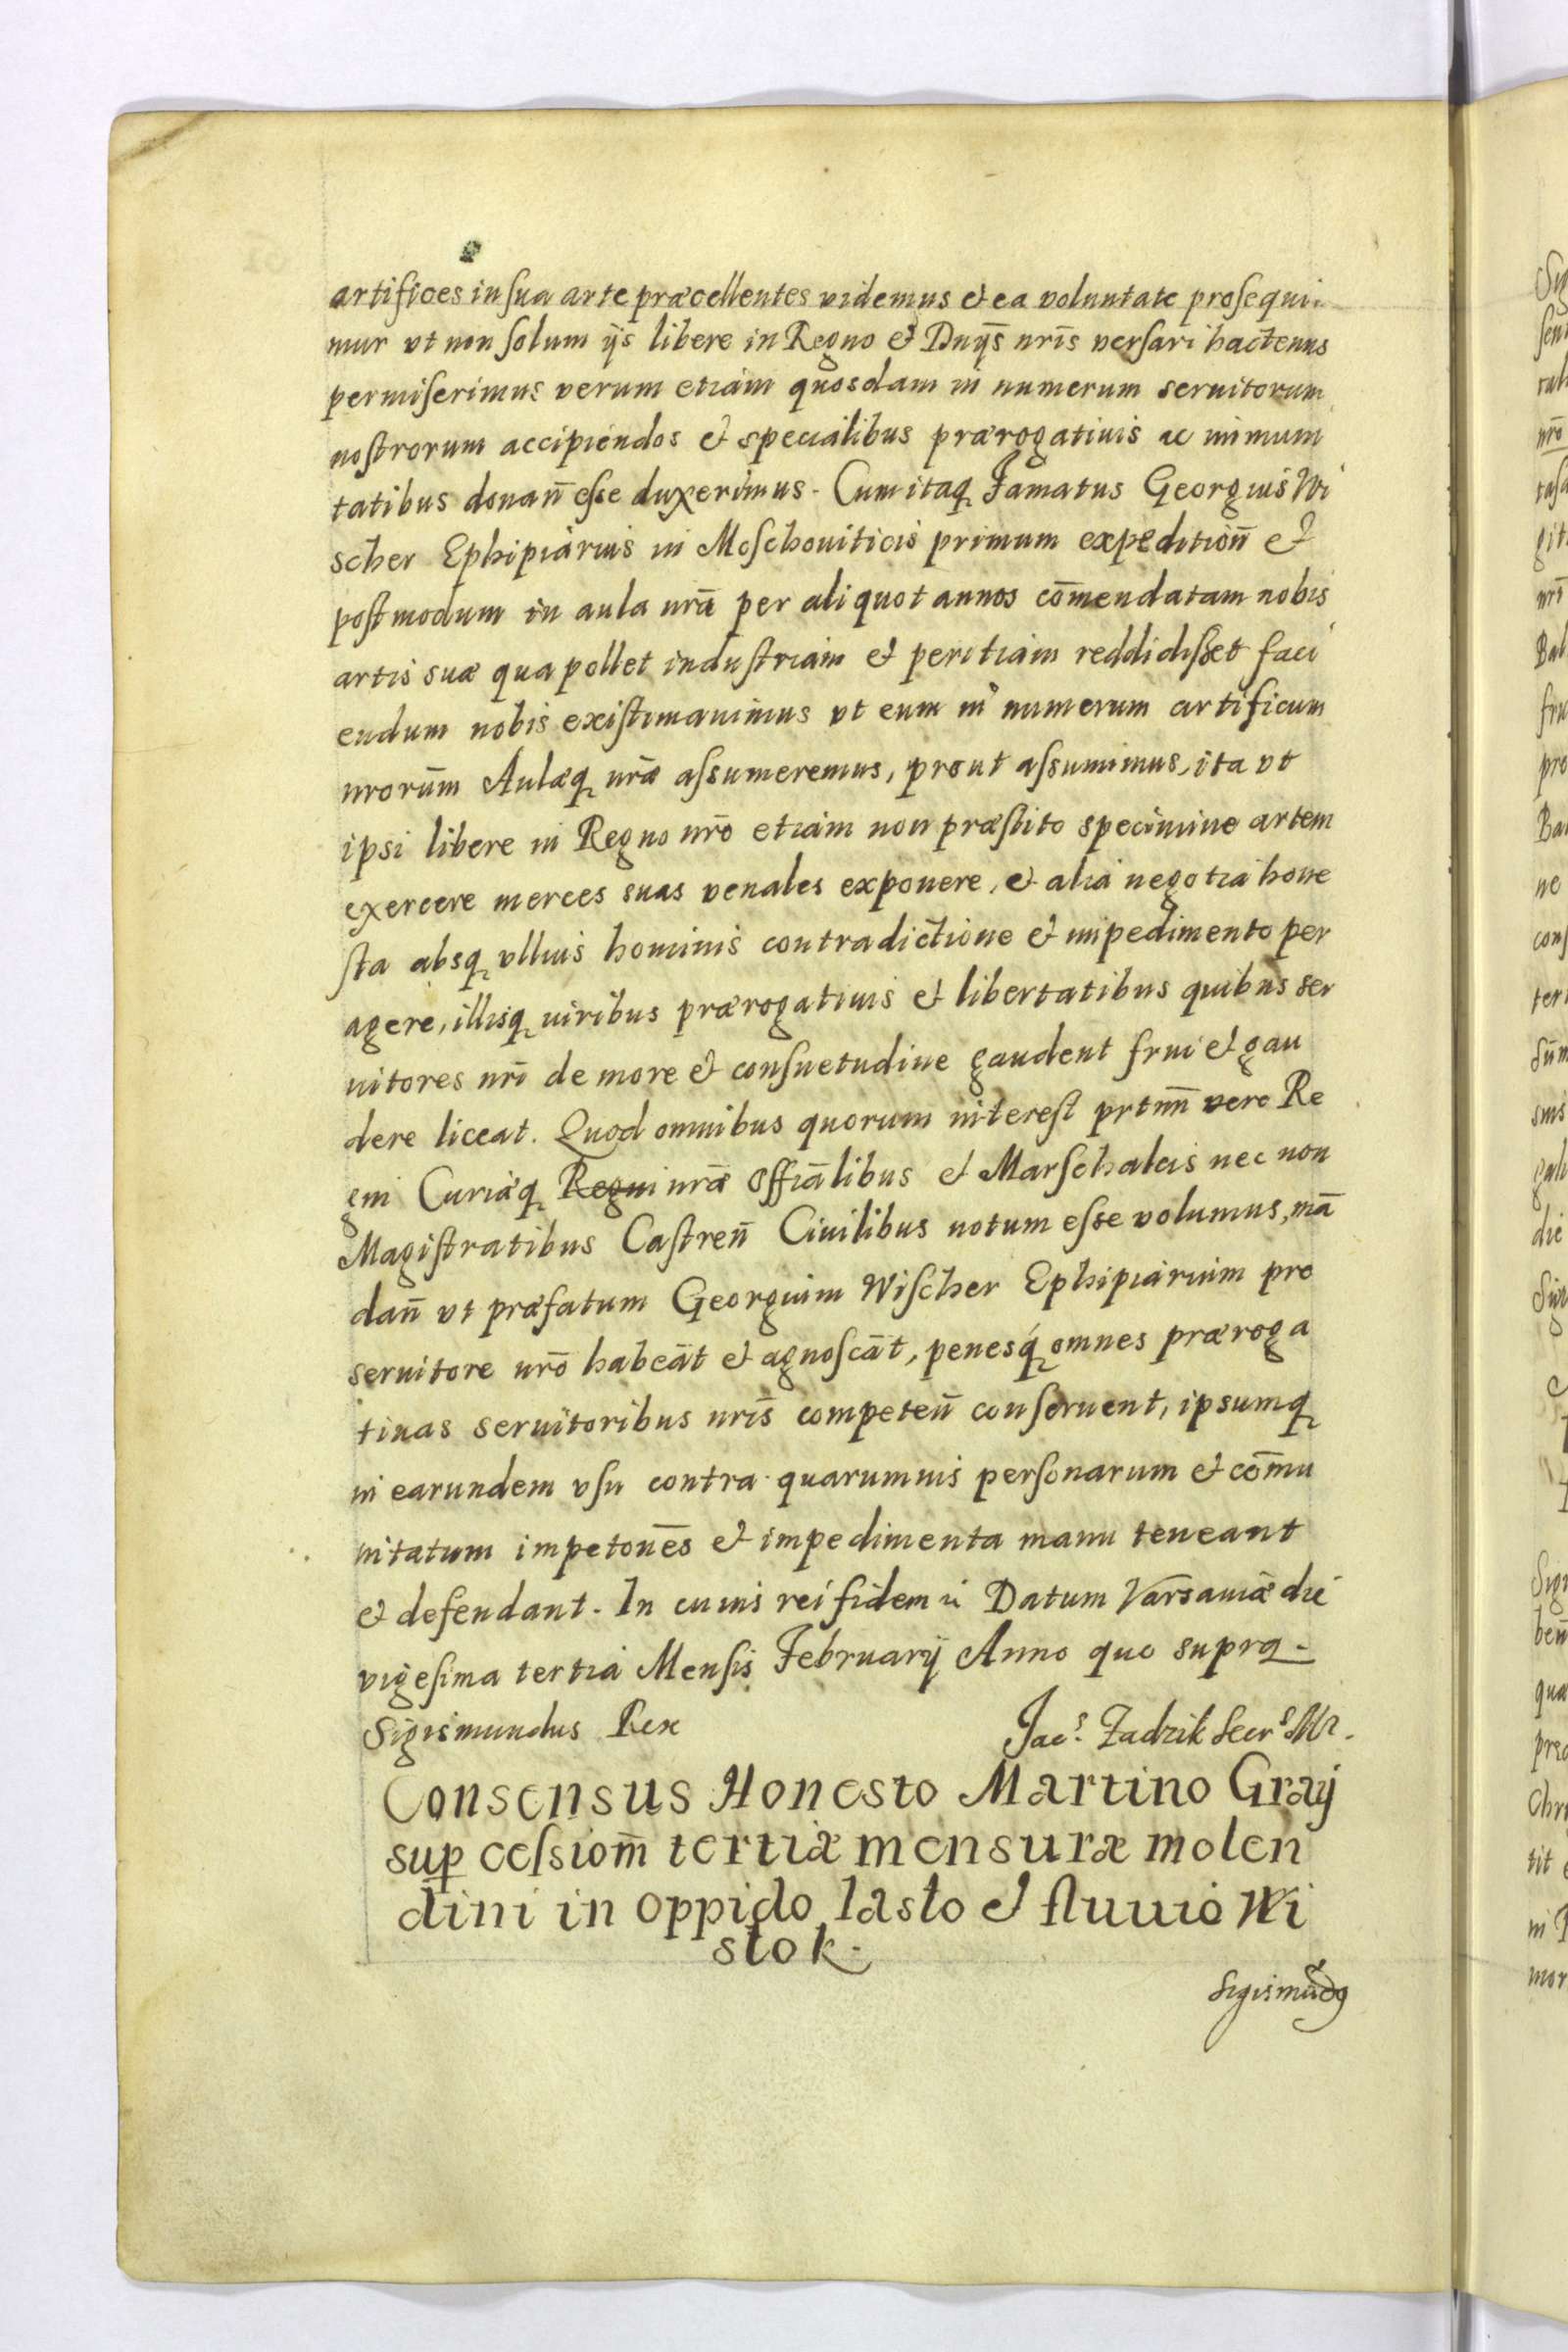 artifices in sua arte præcellentes videmus et ea voluntate prosequi
mur vt non solum ijs libere in Regno et Dnijs nrīs versari hactenus
permiserimus verum etiam quosdam in numerum seruitorum
nostrorum accipiendos et specialibus prærogatiuis ac immuni
tatibus donan̄ esse duxerimus. Cum itaq Famatus Georgius Wi
scher Ephipiarius in Moschouiticis primum expedition̄ et
postmodum in aula nrā per aliquot annos com̄endatam nobis
artis suæ qua pollet industriam et peritiam reddidisset faci
endum nobis existimauimus vt eum in numerum artificum
nrorūm Aulæq nrǣ assumeremus, prout assumimus, ita vt
ipsi libere in Regno nrō etiam non præstito specimine artem
exercere merces suas venales exponere, et alia negotia hone
sta absq vllius hominis contradictione et impedimento per
agere, illisq iuribus prærogatiuis et libertatibus quibus ser
uitores nrī de more et consuetudine gaudent frui et gau
dere liceat. Quod omnibus quorum interest prtim̄ vero Re
gni Curiæq Regni nrǣ Offiālibus et Marschalcis nec non
Magistratibus Castren̄ Ciuilibus notum esse volumus, mā
dan̄ vt præfatum Georgium Wischer Ephipiarium pro
seruitore nrō habeāt et agnoscāt, penesq omnes præroga
tiuas seruitoribus nrīs competen̄ conseruent, ipsumq
in earundem vsu contra quarumuis personarum et com̄u
nitatum impetonēs et impedimenta manu teneant
et defendant. In cuius rei fidem Datum Varsauiæ die
vigesima tertia Mensis Februarij Anno quo supra.
Sigismundus Rex
Jacs. Zadzik Secrs Mr.
Consensus Honesto Martino Graij
sup cessiom̄ tertiæ mensuræ molen
dini in oppido Iaslo et fluuio Wi
slok.
Sigismūdq